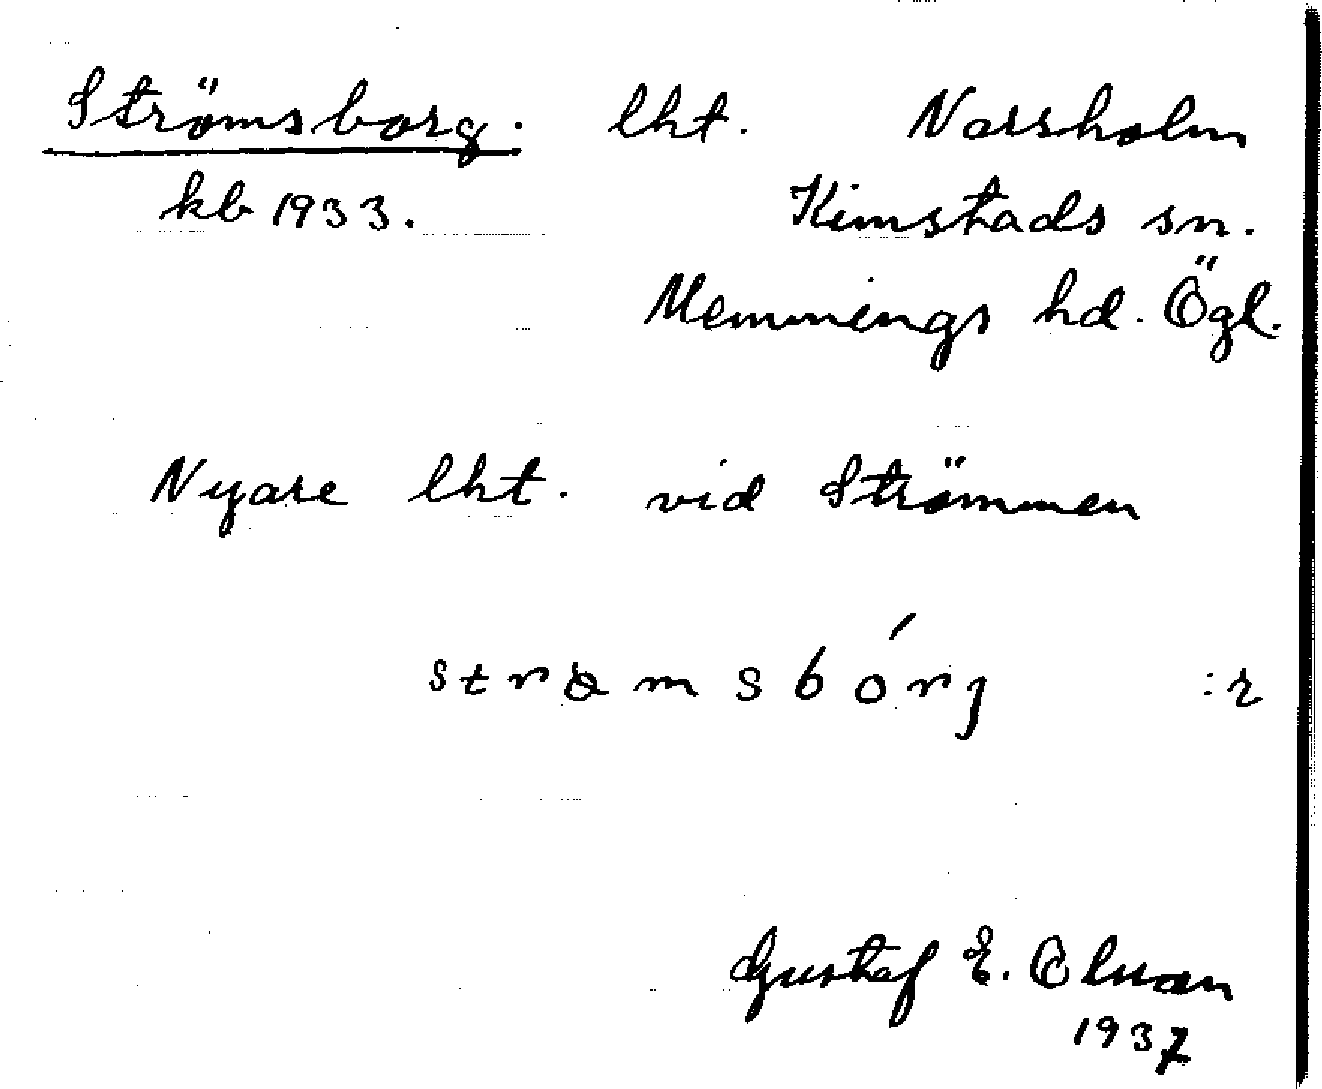 Strömsborg. lht. Norsholm
kb 1933. Kimstads sn.
Memmings hd. Ögl.
Nyare lht. vid Strömmen
strømsbórj :r
Gustaf E. Olsson
1937